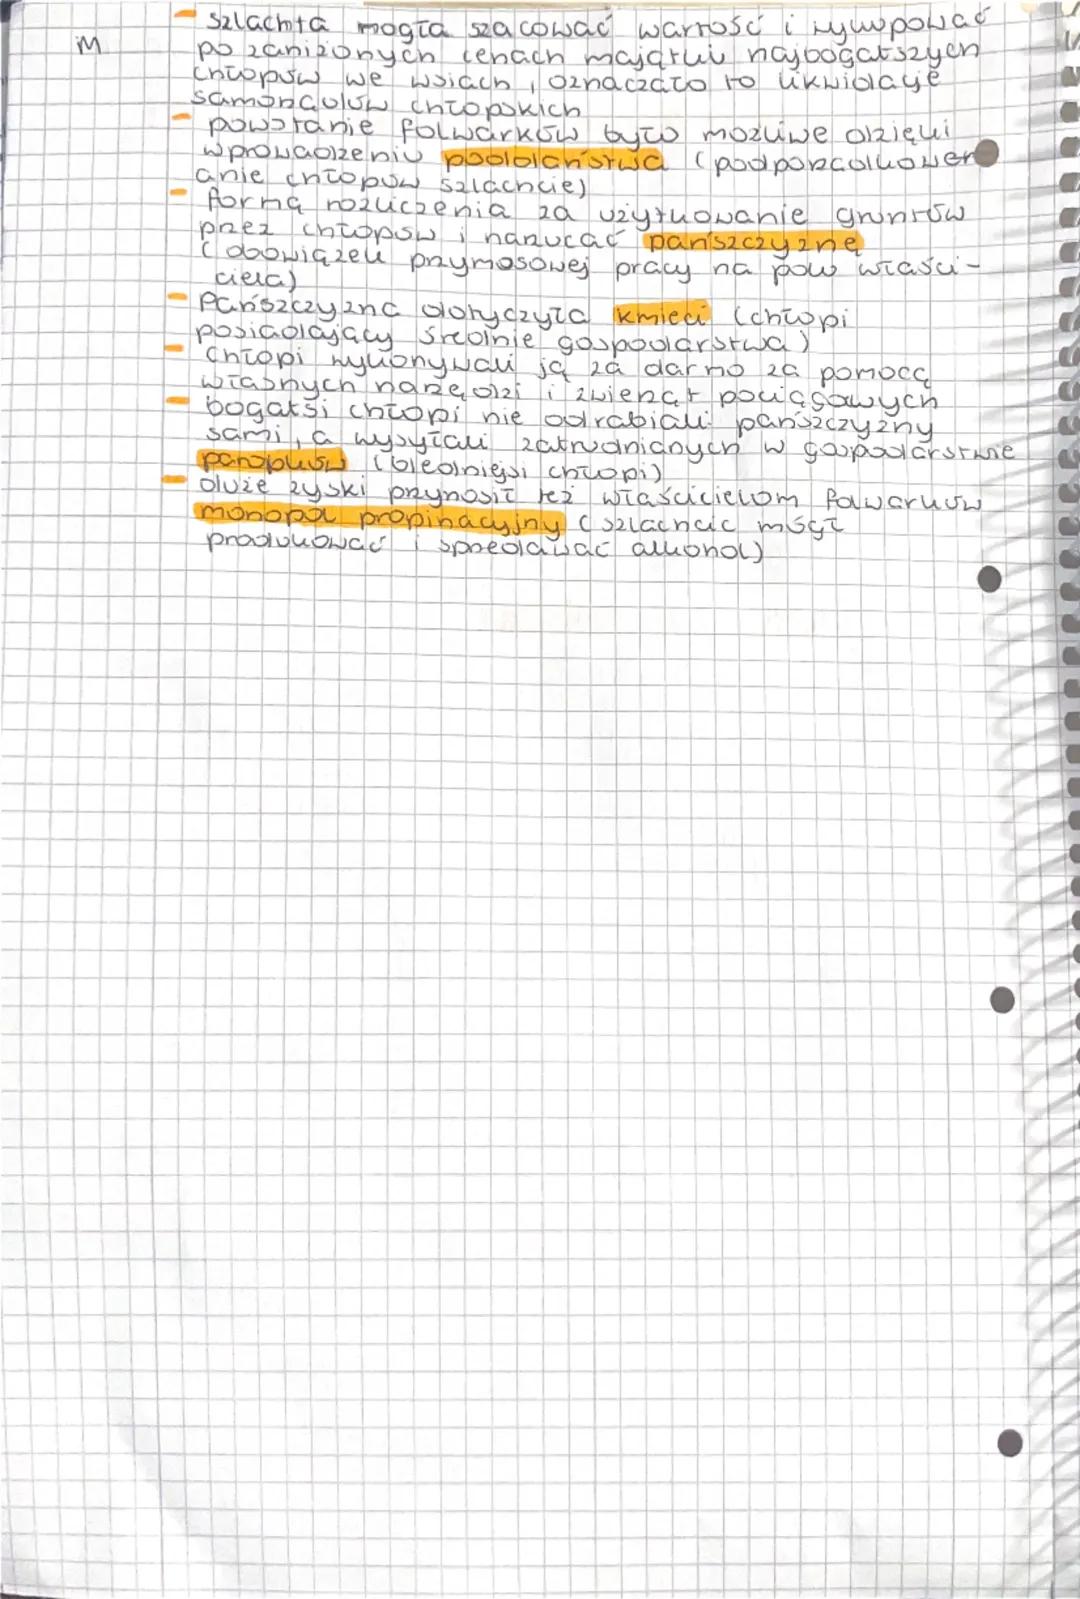 - szlachta mogła szacować wartość i wykupować
M
po zaniżonych cenach majątki najbogatszych
chłopów we wsiach, oznaczało to likwidację
samorządów chłopskich
- powstanie folwarków było możliwe dzięki
wprowadzeniu poddaństwa (podporządkower
anie chłopów szlachcie)
- formą rozliczenia za użytkowanie gruntów
przez chłopów i narzucać pańszczyznę
(obowiązek przymosowej pracy na polu właści-
ciela)
- Pańszczyzna dotyczyła kmieci (chłopi
posiadający średnie gospodarstwa)
- chłopi wykonywali ją za darmo za pomocą
własnych narzędzi i zwierząt pociągowych
- bogatsi chłopi nie odrabiali pańszczyzny
sami, a wysyłali zatrudnianych w gospodarstwie
parobków (biedniejsi chłopi)
- duże zyski przynosił też właścicielom folwarków
monopol propinacyjny (szlachcic mógł
produkować i sprzedawać alkohol)